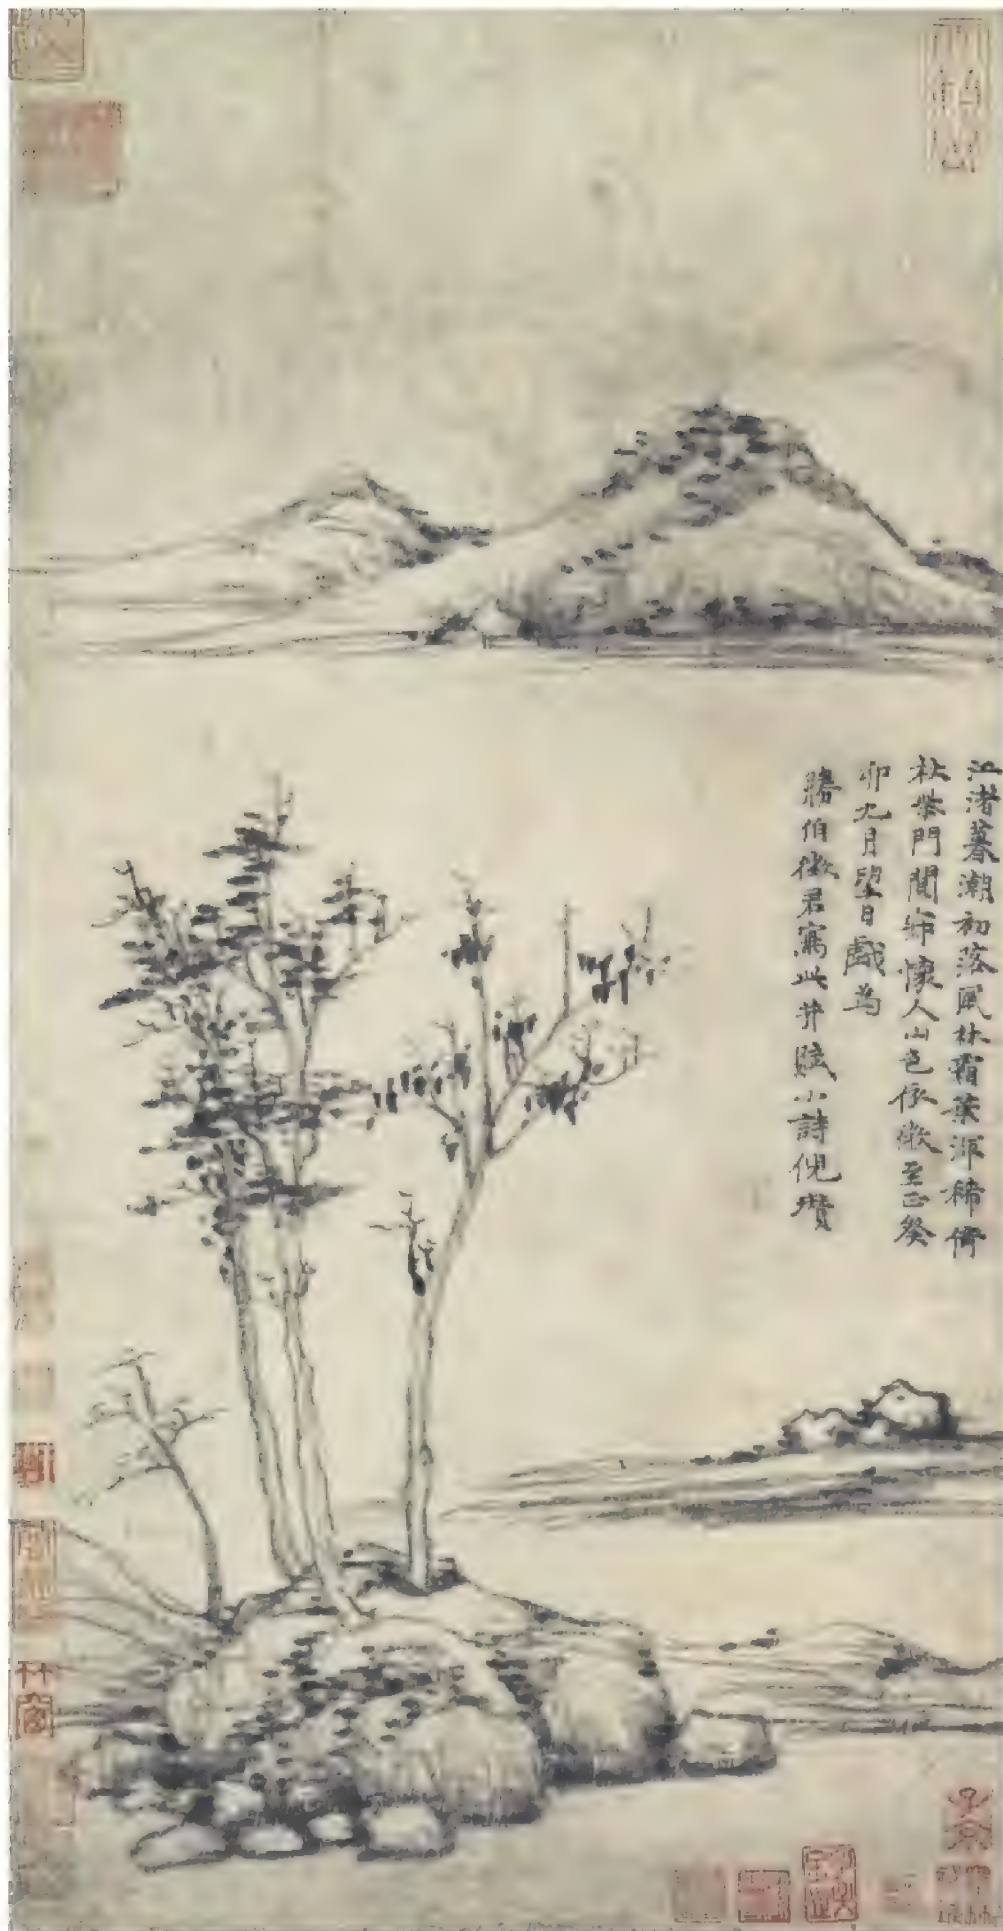 江渚暮潮初落風林霜葉渾稀倚
杖柴門闃寂懷人山色依微至正癸
卯九月望日戲為
勝伯徵君寫此并賦小詩倪瓚
竹窗
子京